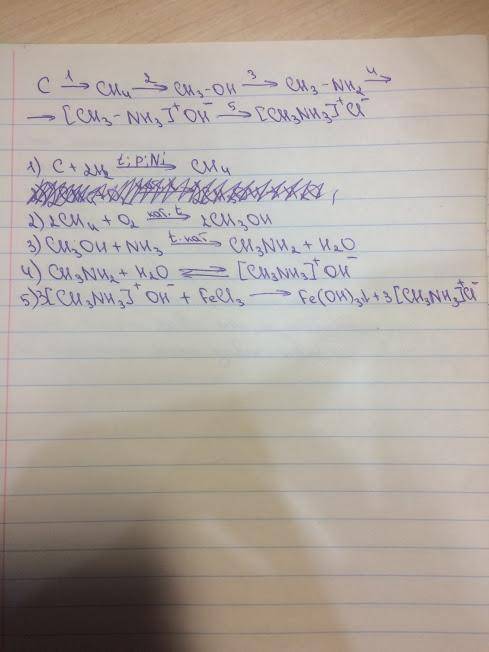 C 1→ CH₄ 2→ CH₃-OH 3→ CH₃-NH₂ 4→
→ [CH₃-NH₃]⁺OH⁻ 5→ [CH₃NH₃]⁺Cl⁻
1) C + 2H₂ t;p;Ni→ CH₄
2) 2CH₄ + O₂ кат. t→ 2CH₃OH
3) CH₃OH + NH₃ t. кат→ CH₃NH₂ + H₂O
4) CH₃NH₂ + H₂O ⇌ [CH₃NH₃]⁺OH⁻
5) 3[CH₃NH₃]⁺OH⁻ + FeCl₃ → Fe(OH)₃↓ + 3[CH₃NH₃]⁺Cl⁻